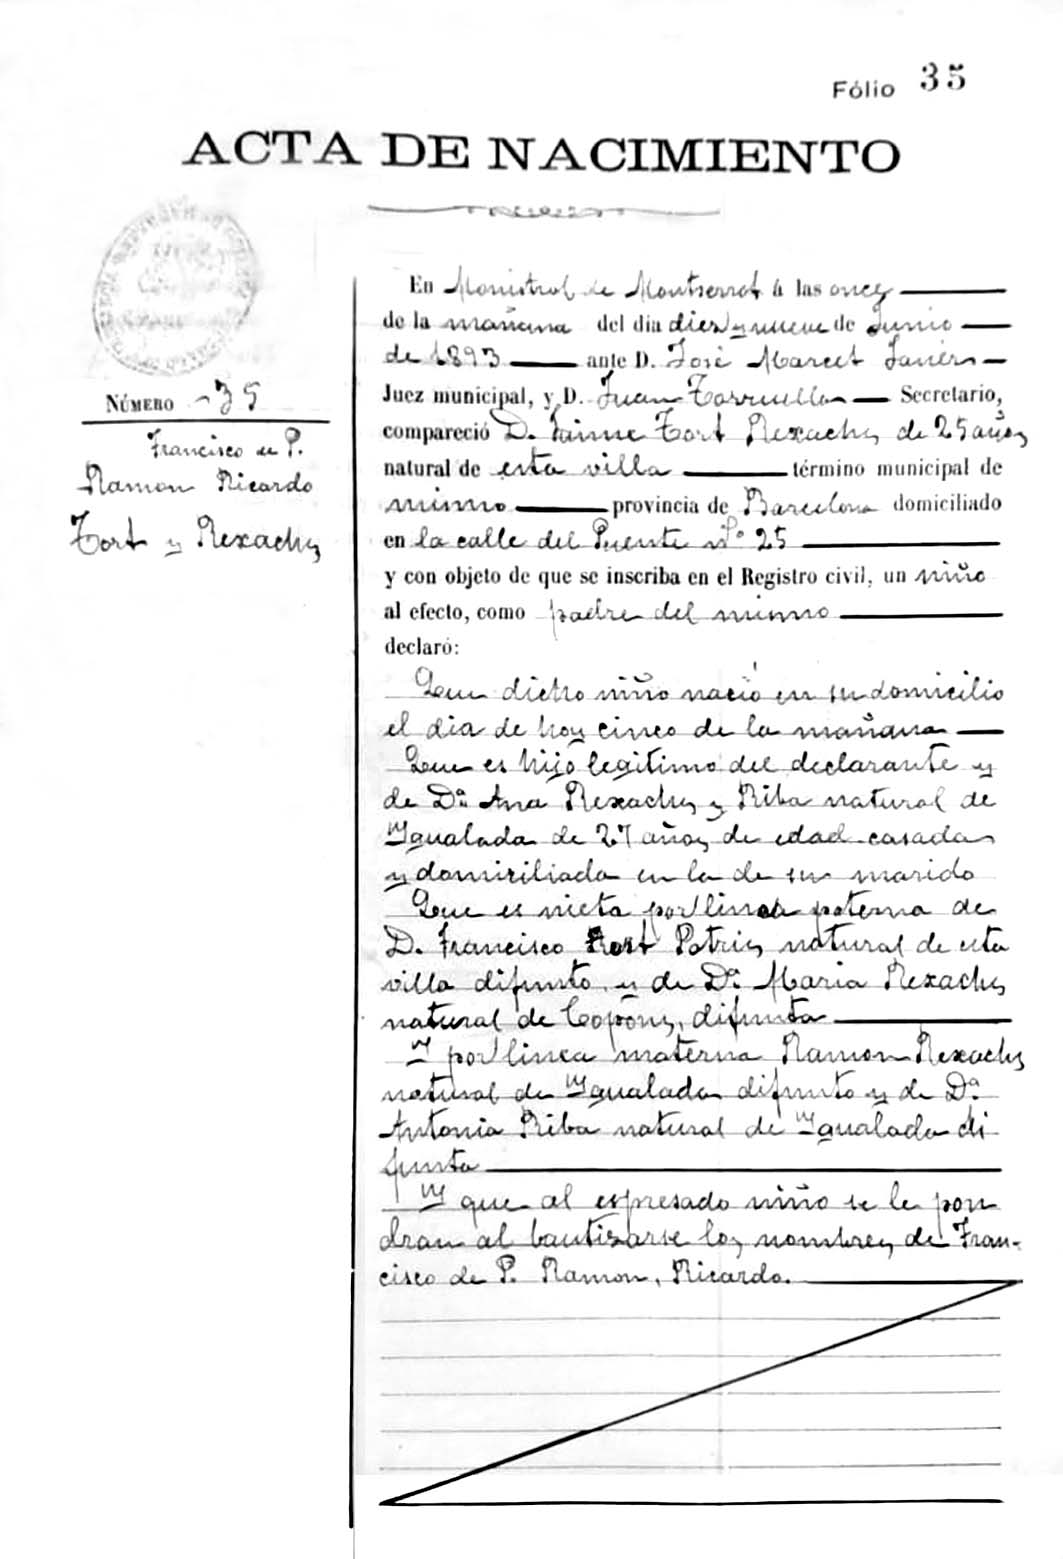 Fólio 35
ACTA DE NACIMIENTO
NÚMERO 35
Francisco de P.
Ramon Ricardo
Tort y Rexachs
En Monistrol de Montserrat á las once
de la mañana del dia diez y nueve de Junio
de 1893 ante D. José Marcet
Juez municipal, y D. Juan Torruella Secretario,
compareció D. Jaime Tort Rexachs de 25 años
natural de esta villa término municipal de
mismo provincia de Barcelona domiciliado
en la calle del Puente nº 25
y con objeto de que se inscriba en el Registro civil, un niño
al efecto, como padre del mismo
declaró:
Que dicho niño nació en su domicilio
el dia de hoy cinco de la mañana
Que es hijo legitimo del declarante y
de Dª Ana Rexachs y Riba natural de
Ygualada de 27 años de edad casada
y domiciliada en la de su marido
Que es nieta por linea paterna de
D. Francisco Tort Potris natural de esta
villa difunto, y de Dª Maria Rexachs
natural de Copons, difunta
Y por linea materna Ramon Rexachs
natural de Ygualada difunto y de Dª
Antonia Riba natural de Ygualada di
funta
Y que al espresado niño se le pon
dran al bautizarse los nombres de Fran-
cisco de P. Ramon, Ricardo.